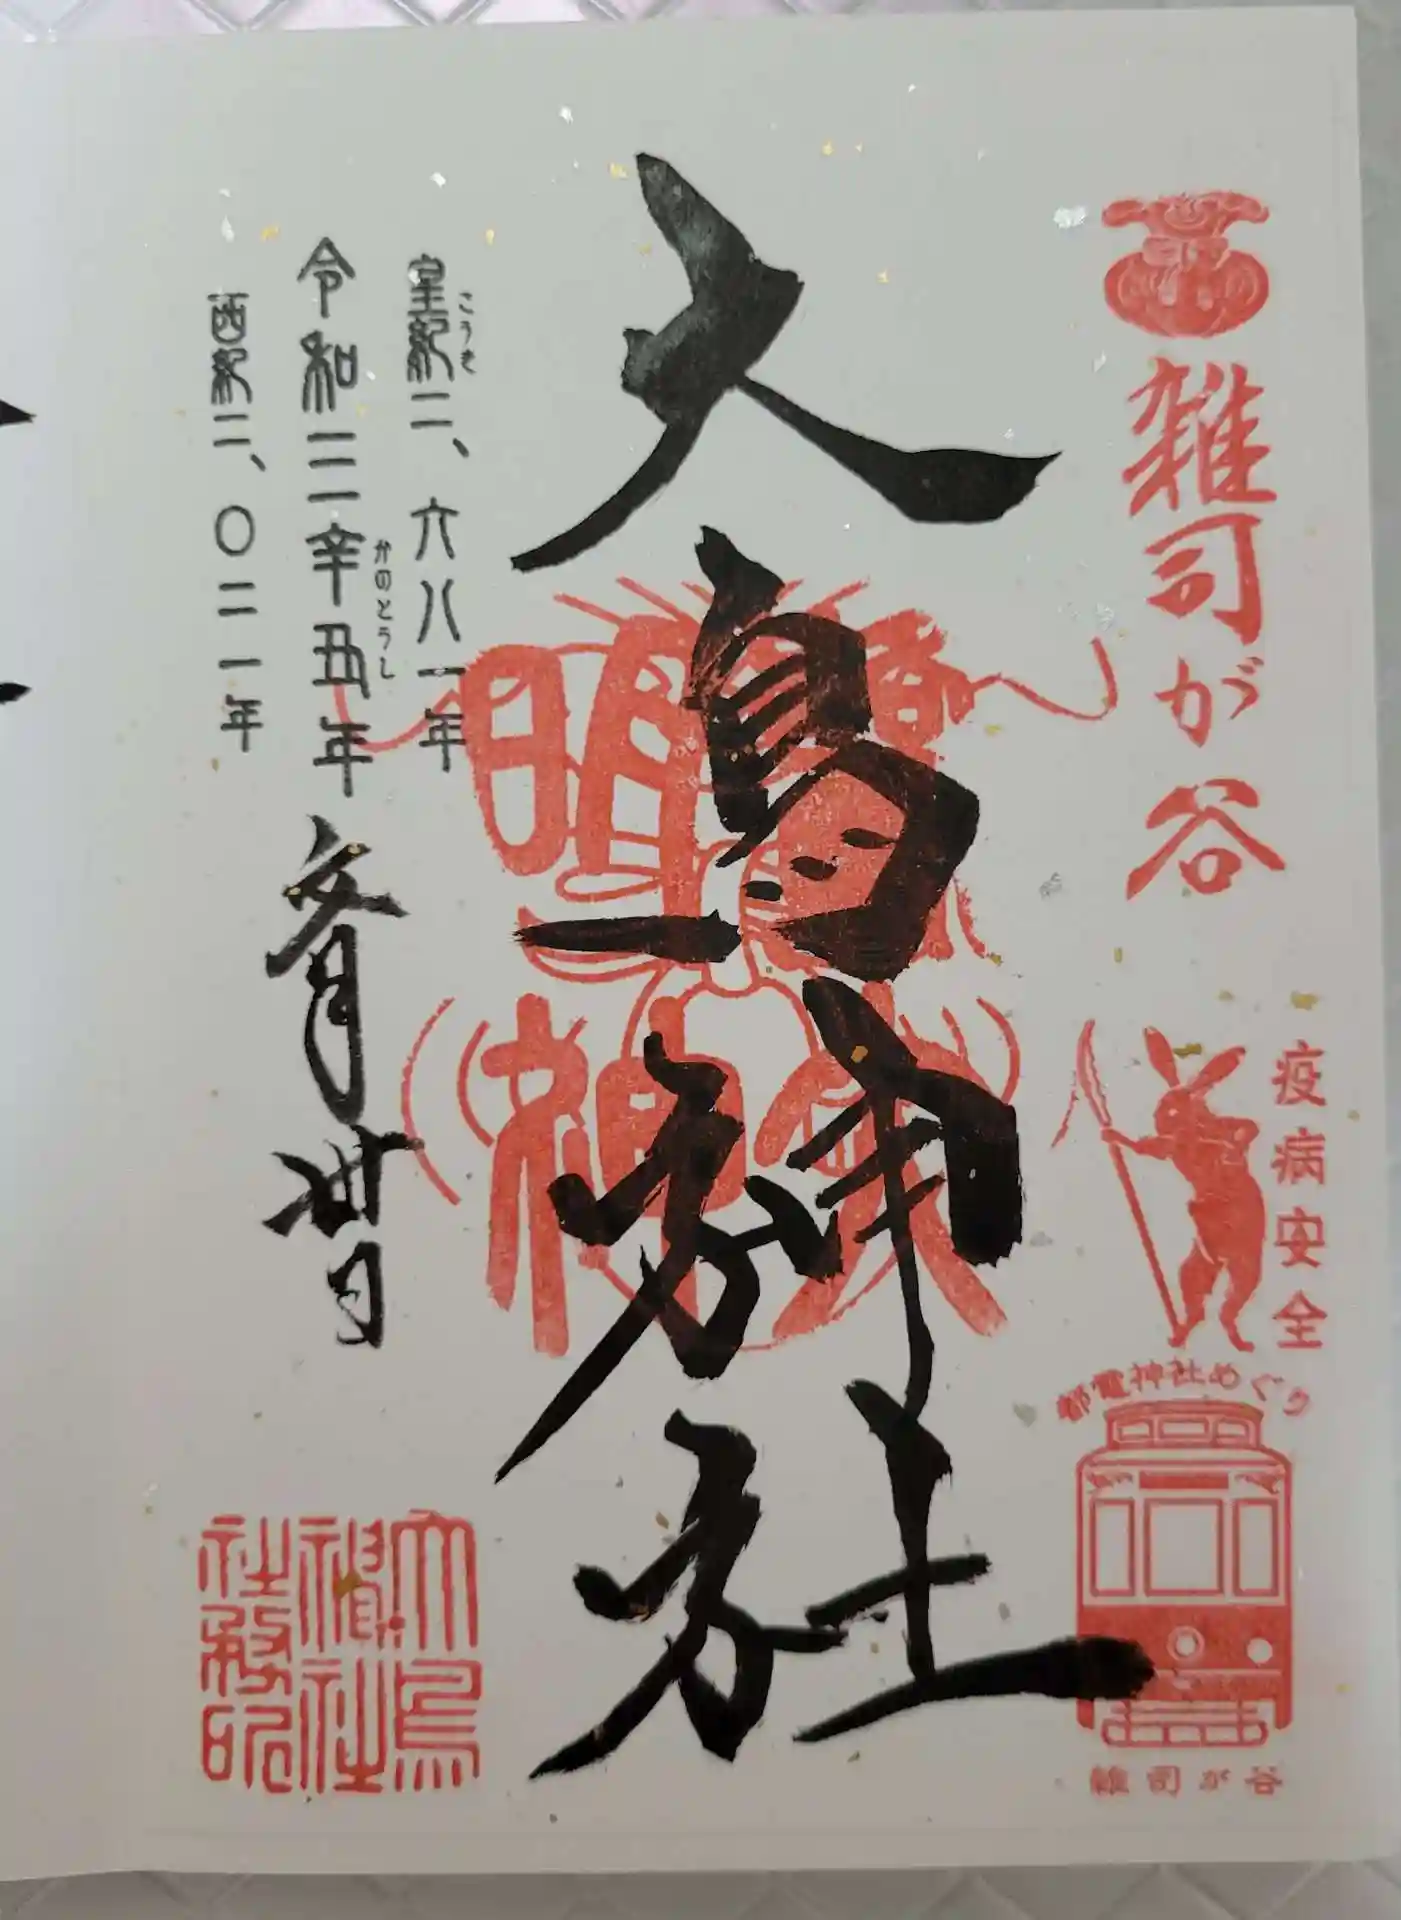 雑司が谷
疫病安全
都電神社めぐり
雑司が谷
大鳥神社
鷲大明神
皇紀二、六八一年
こうき
令和三辛丑年
かのとうし
西紀二、〇二一年
大鳥
神社
社務印